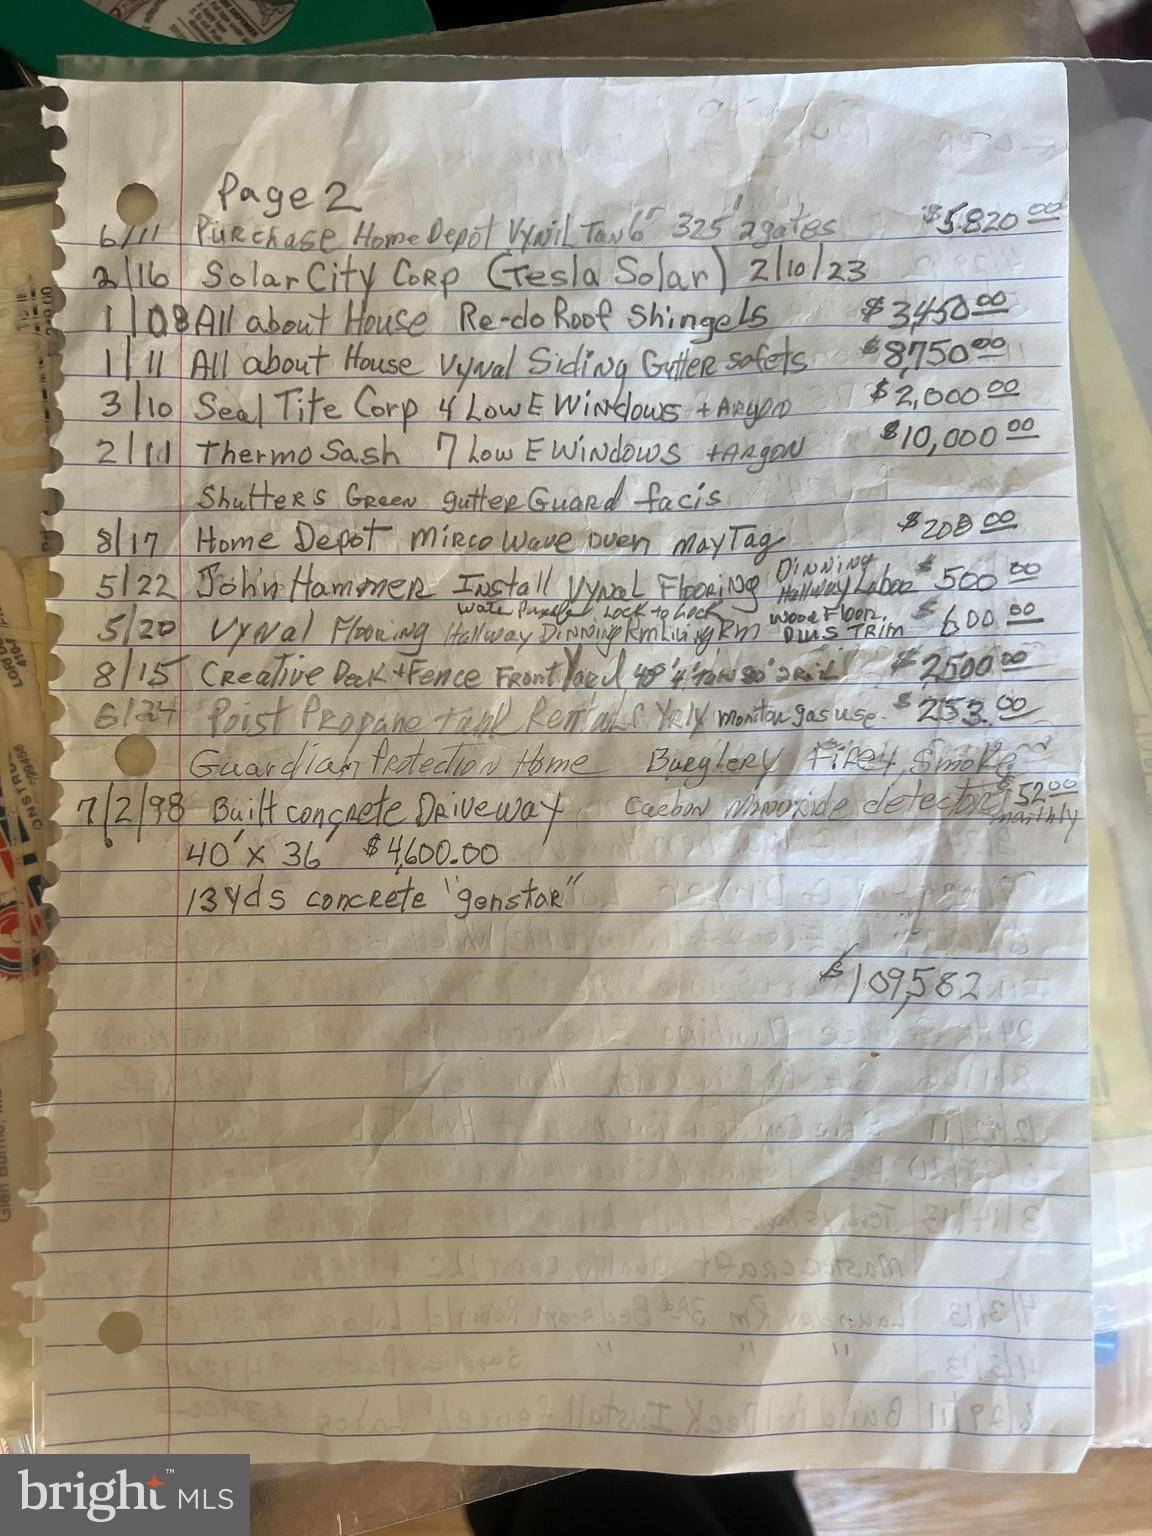 Page 2
6/11 Purchase Home Depot Vynil Tan 6" 325' 2 gates $5820 00
2/16 Solar City Corp (Tesla Solar) 2/10/23
1/08 All about House Re-do Roof Shingels $3,450 00
1/11 All about House Vynal Siding Gutter sofets $8,750 00
3/10 Seal Tite Corp 4 Low E Windows + Argon $2,000 00
2/11 Thermo Sash 7 Low E Windows + Argon $10,000 00
Shutters Green gutter Guard facis
8/17 Home Depot Mirco wave oven MayTag $208 00
5/22 John Hammer Install Vynal Flooring Dinning Hallway Labor $500 00
Lock to Lock
5/20 Vynal Flooring Hallway Dinning Rm Living Rm Wood Floor. Plus Trim $600.00
8/15 Creative Deck + Fence Front Yard $2500 00
6/24 Poist Propane tank Rental Yrly monitor gas use. $253.00
Guardian Protection Home Burglery Fire, Smoke
7/2/98 Built concrete Driveway Carbon Monoxide detectors $52 00 monthly
40' x 36' $4,600.00
13 yds concrete "genstar"
$109,582
bright MLS